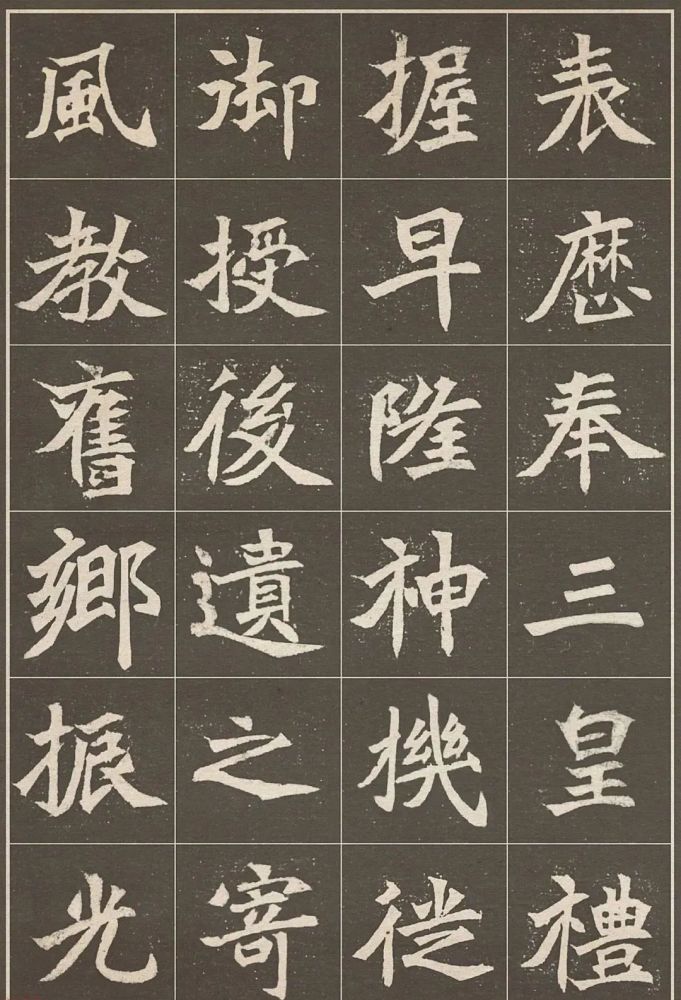 表歷奉三皇禮
握早隆神機從
御授後遺之寄
風教舊鄉振光